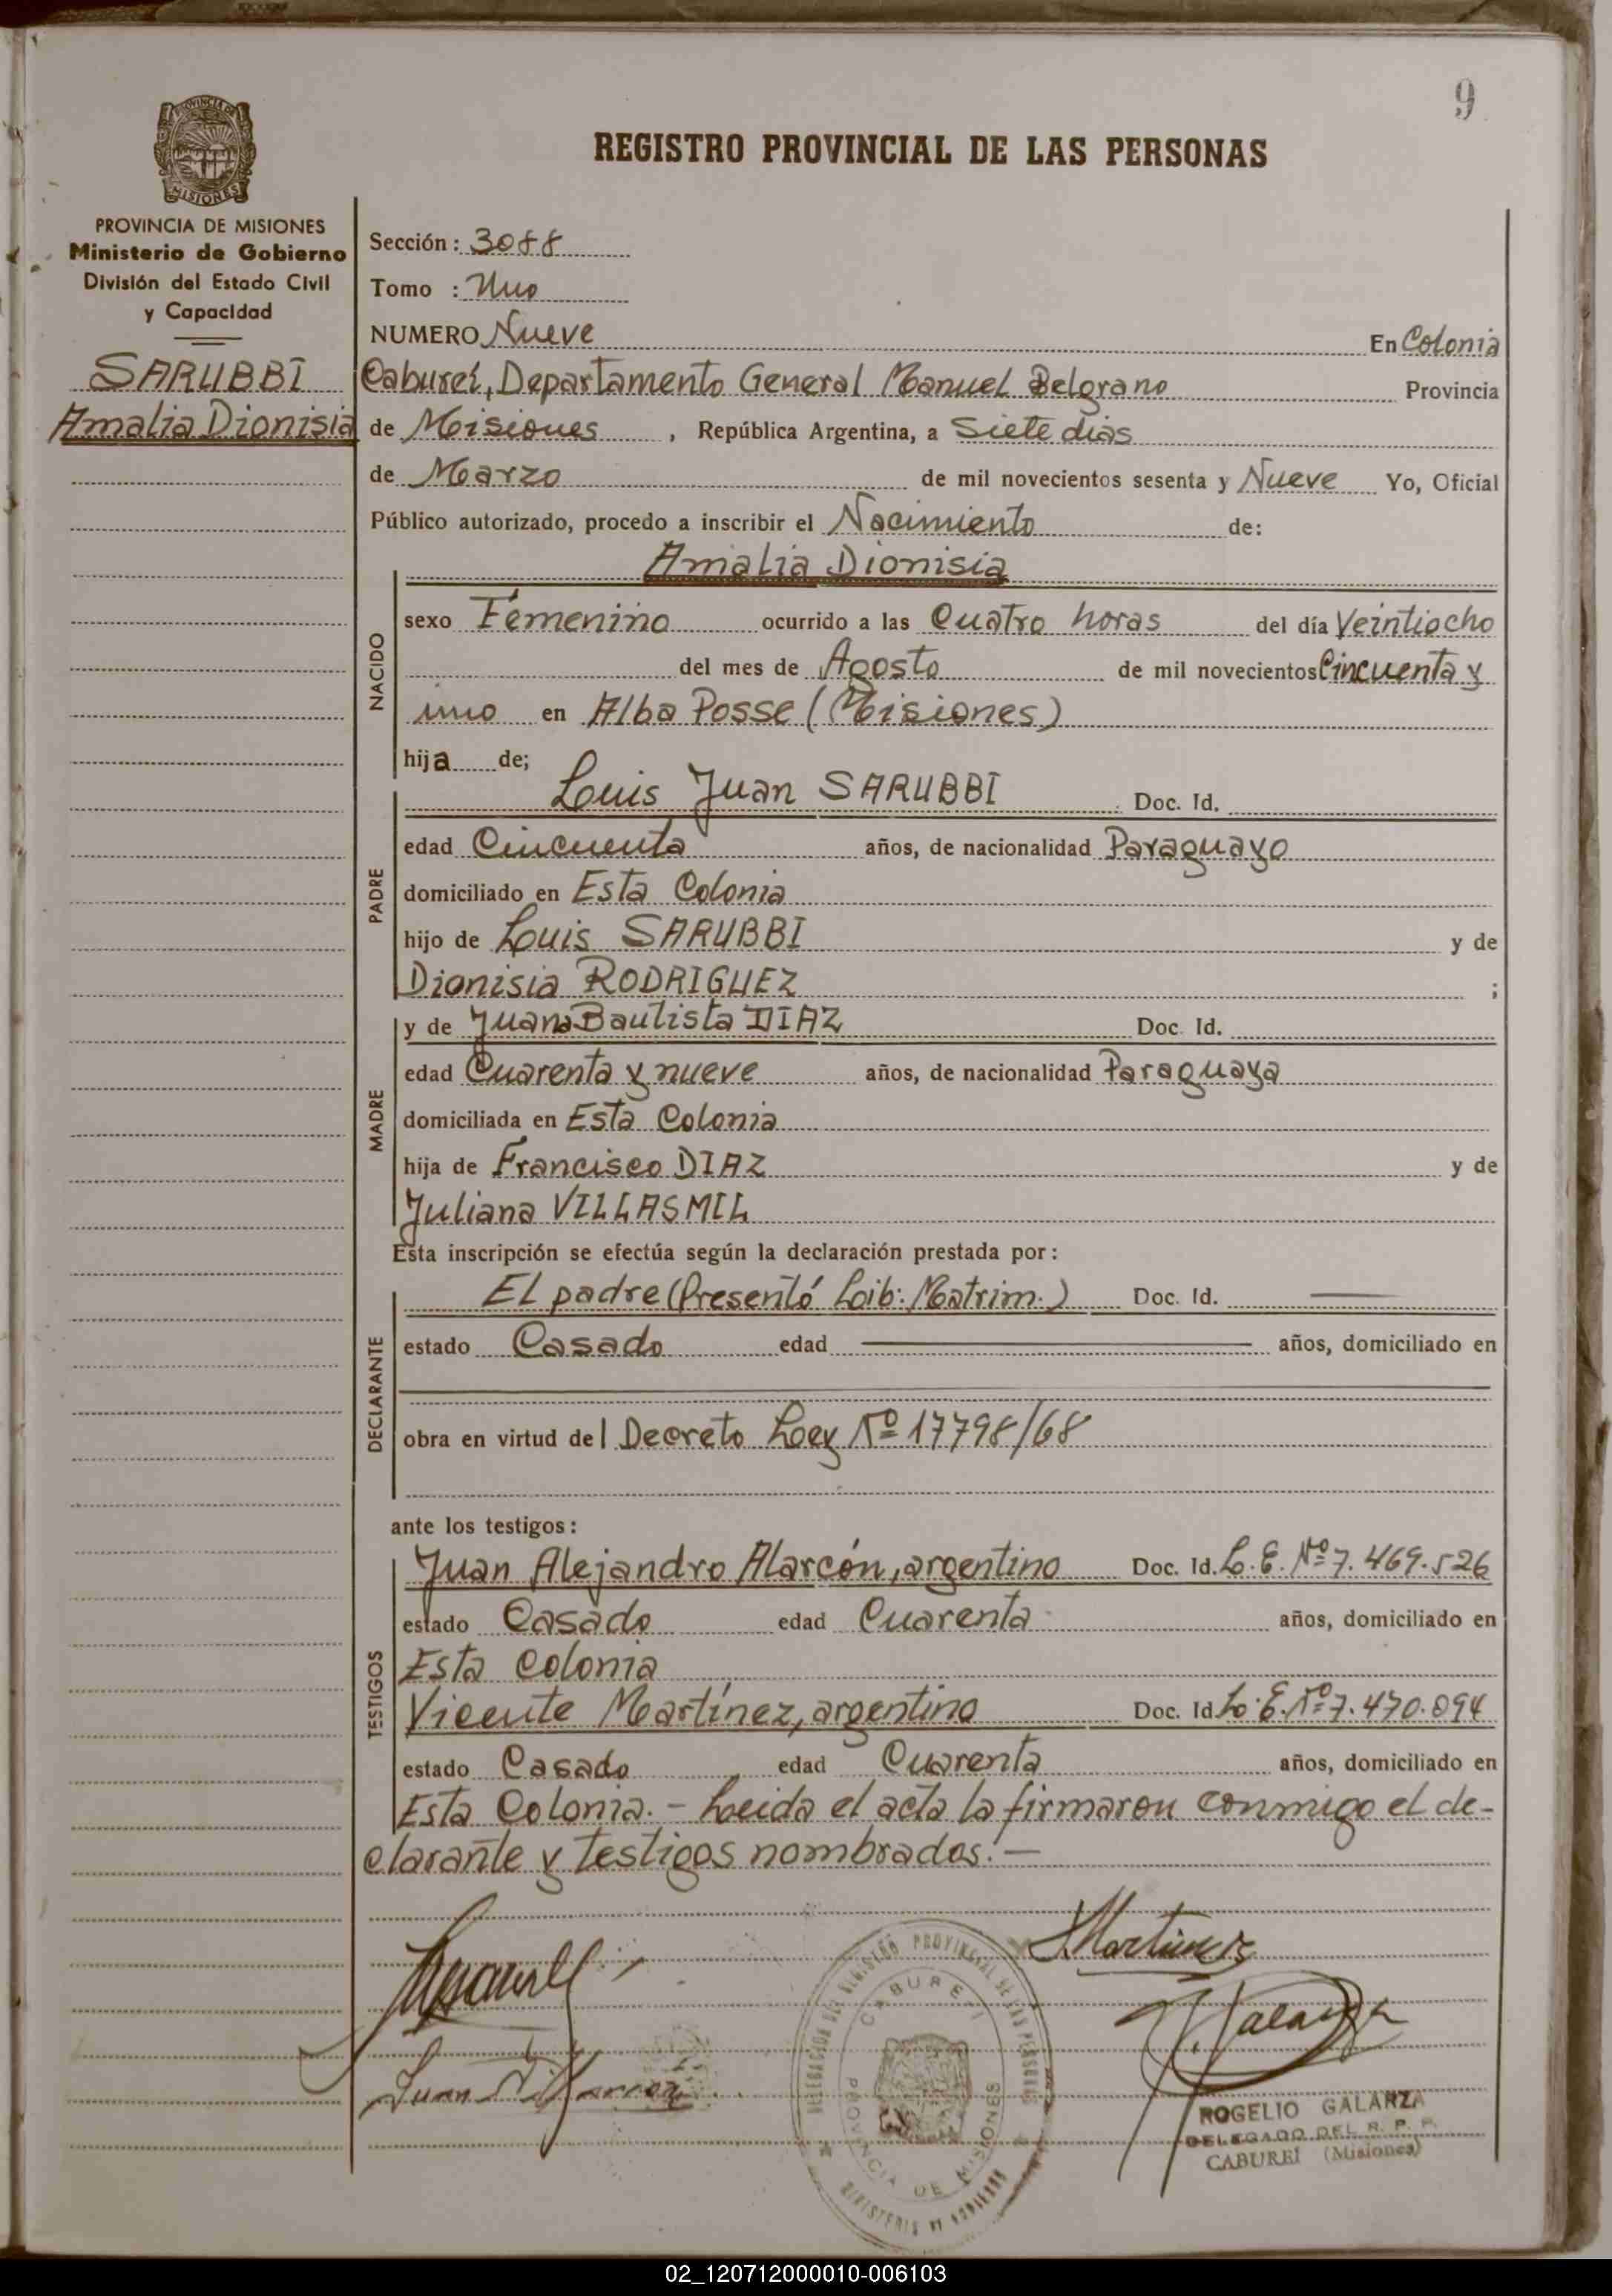 9
PROVINCIA DE
MISIONES
REGISTRO PROVINCIAL DE LAS PERSONAS
PROVINCIA DE MISIONES
Ministerio de Gobierno
División del Estado Civil
y Capacidad
SARUBBI
Amalia Dionisia
Sección: 3088
Tomo : Uno
NUMERO Nueve En Colonia
Caburei, Departamento General Manuel Belgrano Provincia
de Misiones, República Argentina, a Siete dias
de Marzo de mil novecientos sesenta y Nueve Yo, Oficial
Público autorizado, procedo a inscribir el Nacimiento de:
Amalia Dionisia
NACIDO
sexo Femenino ocurrido a las Cuatro horas del día Veintiocho
del mes de Agosto de mil novecientos Cincuenta y
uno en Alba Posse (Misiones)
hija de;
PADRE
Luis Juan SARUBBI Doc. Id.
edad Cincuenta años, de nacionalidad Paraguayo
domiciliado en Esta Colonia
hijo de Luis SARUBBI y de
Dionisia RODRIGUEZ ;
MADRE
y de Juana Bautista DIAZ Doc. Id.
edad Cuarenta y nueve años, de nacionalidad Paraguaya
domiciliada en Esta Colonia
hija de Francisco DIAZ y de
Juliana VILLASMIL
Esta inscripción se efectúa según la declaración prestada por:
DECLARANTE
El padre (Presentó Lib: Matrim.) Doc. Id. —
estado Casado edad — años, domiciliado en
obra en virtud del Decreto Ley Nº 17798/68
ante los testigos:
TESTIGOS
Juan Alejandro Alarcón, argentino Doc. Id. L.E. Nº 7.469.526
estado Casado edad Cuarenta años, domiciliado en
Esta Colonia
Vicente Martínez, argentino Doc. Id. L.E. Nº 7.470.094
estado Casado edad Cuarenta años, domiciliado en
Esta Colonia. - Leida el acta la firmaron conmigo el de-
clarante y testigos nombrados. —
Martinez
Galarza
Juan A. Alarcón
DELEGACION DEL REGISTRO PROVINCIAL DE LAS PERSONAS
CABUREI
PROVINCIA DE MISIONES
MINISTERIO DE GOBIERNO
ROGELIO GALARZA
DELEGADO DEL R. P. P.
CABUREI (Misiones)
02_120712000010-006103